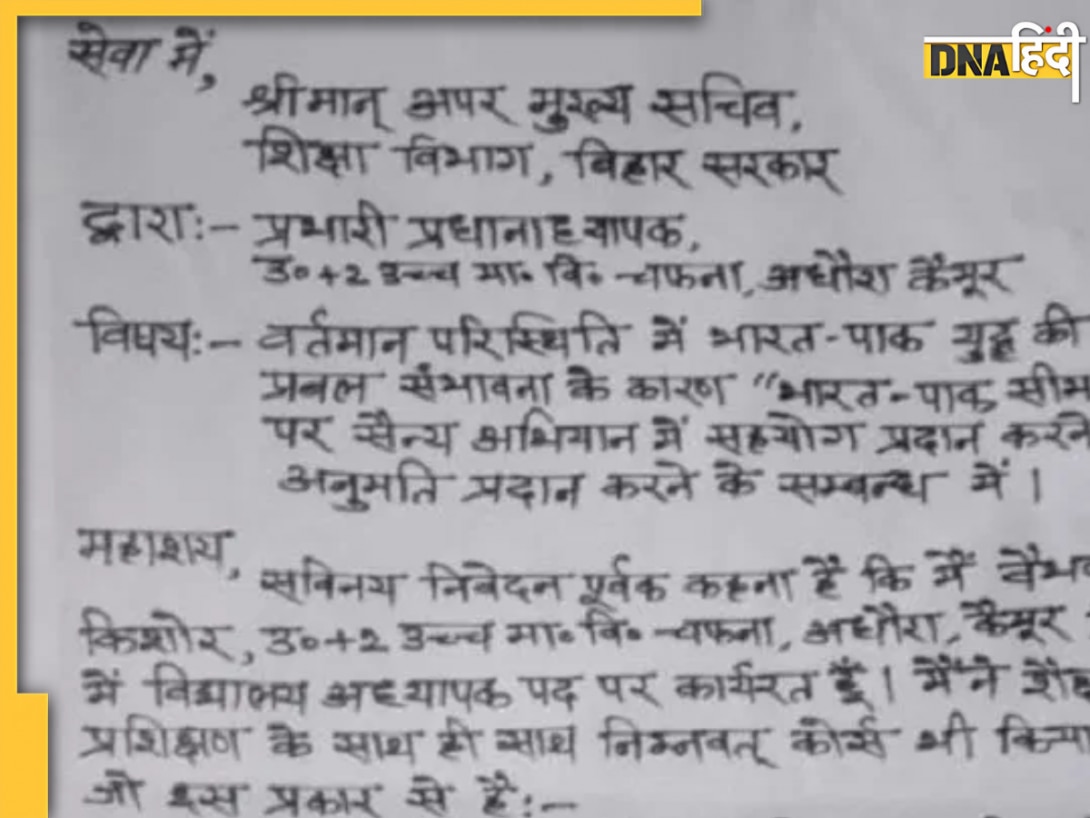 DNA हिंदी
सेवा में,
श्रीमान् अपर मुख्य सचिव,
शिक्षा विभाग, बिहार सरकार
द्वाराः- प्रभारी प्रधानाध्यापक,
उ०+2 उच्च मा० वि० चफना, अधौरा कैमूर
विषयः- वर्तमान परिस्थिति में भारत-पाक युद्ध की
प्रबल संभावना के कारण "भारत-पाक सीम
पर सैन्य अभियान में सहयोग प्रदान करने
अनुमति प्रदान करने के सम्बन्ध में।
महाशय,
सविनय निवेदन पूर्वक कहना है कि मैं वैभव
किशोर, उ०+2 उच्च मा० वि० चफना, अधौरा, कैमूर
में विद्यालय अध्यापक पद पर कार्यरत हूँ। मैंने
प्रशिक्षण के साथ ही साथ निम्नवत् कोर्स भी किया
जो इस प्रकार से है:-